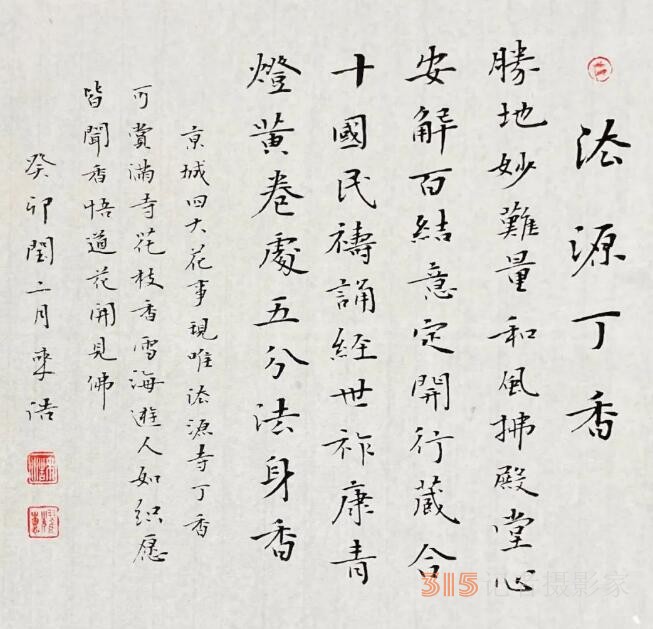 法源丁香
勝地妙難量和風拂殿堂心
安解百結意定開行藏合
十國民禱誦經世祚康青
燈黃卷處五分法身香
京城四大花事現唯法源寺丁香
可賞滿寺花枝香雪海遊人如織愿
皆聞香悟道花開見佛
癸卯閏二月來浩
315记者摄影家